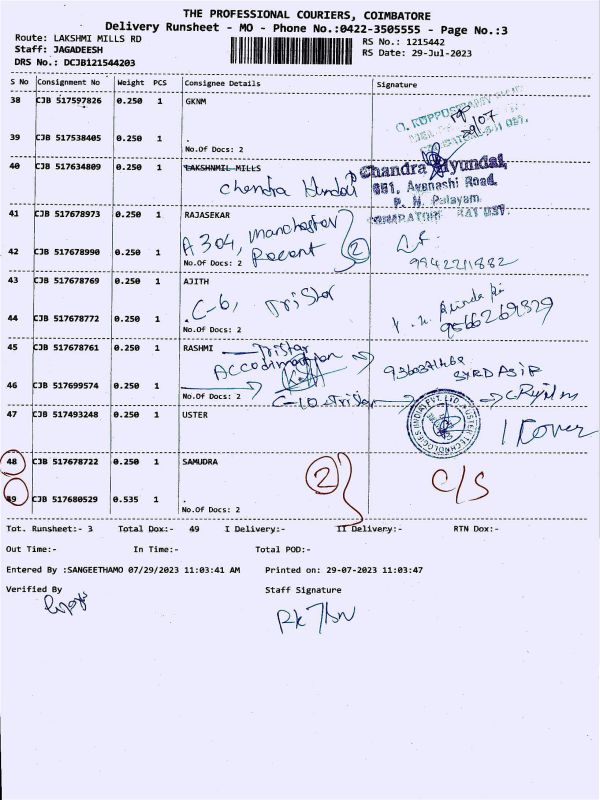 THE PROFESSIONAL COURIERS, COIMBATORE
Delivery Runsheet - MO - Phone No.:0422-3505555 - Page No.:3
Route: LAKSHMI MILLS RD
Staff: JAGADEESH
DRS No.: DCJB121544203
RS No.: 1215442
RS Date: 29-Jul-2023
S No Consignment No Weight PCS Consignee Details Signature
38 CJB 517597826 0.250 1 GKNM
29/07
39 CJB 517538405 0.250 1 .
No.Of Docs: 2
40 CJB 517634809 0.250 1 LAKSHNMIL MILLS
Chandra Hyundai
Chandra Hyundai,
651, Avanashi Road,
P. N. Palayam
COIMBATORE EAST DST.
41 CJB 517678973 0.250 1 RAJASEKAR
A 304, Manchester
Recent
2
42 CJB 517678990 0.250 1 .
No.Of Docs: 2
9942211882
43 CJB 517678769 0.250 1 AJITH
C-6, Tristar
44 CJB 517678772 0.250 1 .
No.Of Docs: 2
9566269329
45 CJB 517678761 0.250 1 RASHMI Tristar
Accodimation
46 CJB 517699574 0.250 1 .
No.Of Docs: 2
C-10 Tristar
47 CJB 517493248 0.250 1 USTER
USTER TECHNOLOGIES (INDIA) PVT. LTD.
1 Cover
48 CJB 517678722 0.250 1 SAMUDRA
2
C/S
49 CJB 517680529 0.535 1 .
No.Of Docs: 2
Tot. Runsheet:- 3 Total Dox:- 49 I Delivery:- II Delivery:- RTN Dox:-
Out Time:- In Time:- Total POD:-
Entered By :SANGEETHAMO 07/29/2023 11:03:41 AM Printed on: 29-07-2023 11:03:47
Verified By Staff Signature